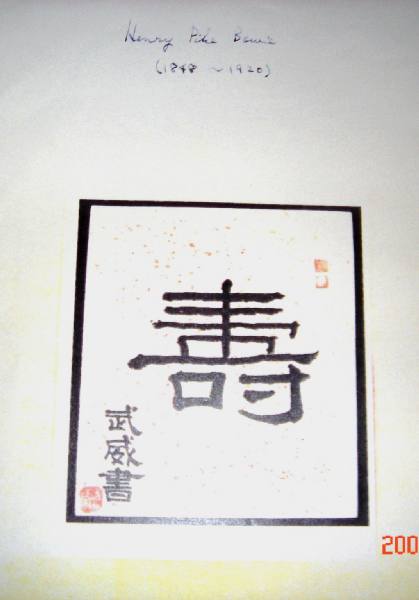 Henry Pike Bowie
(1848 ~ 1920)
壽
武威書
200